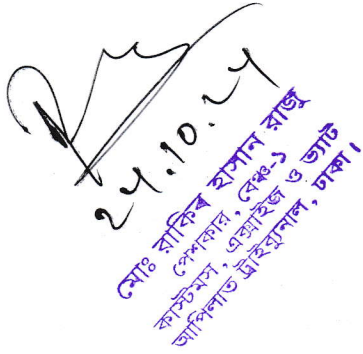 24.10.24
মোঃ রাকিব হাসান রাজু
পেশকার, বেঞ্চ-১
কাস্টমস, এক্সাইজ ও ভ্যাট
আপিলাত ট্রাইব্যুনাল, ঢাকা।